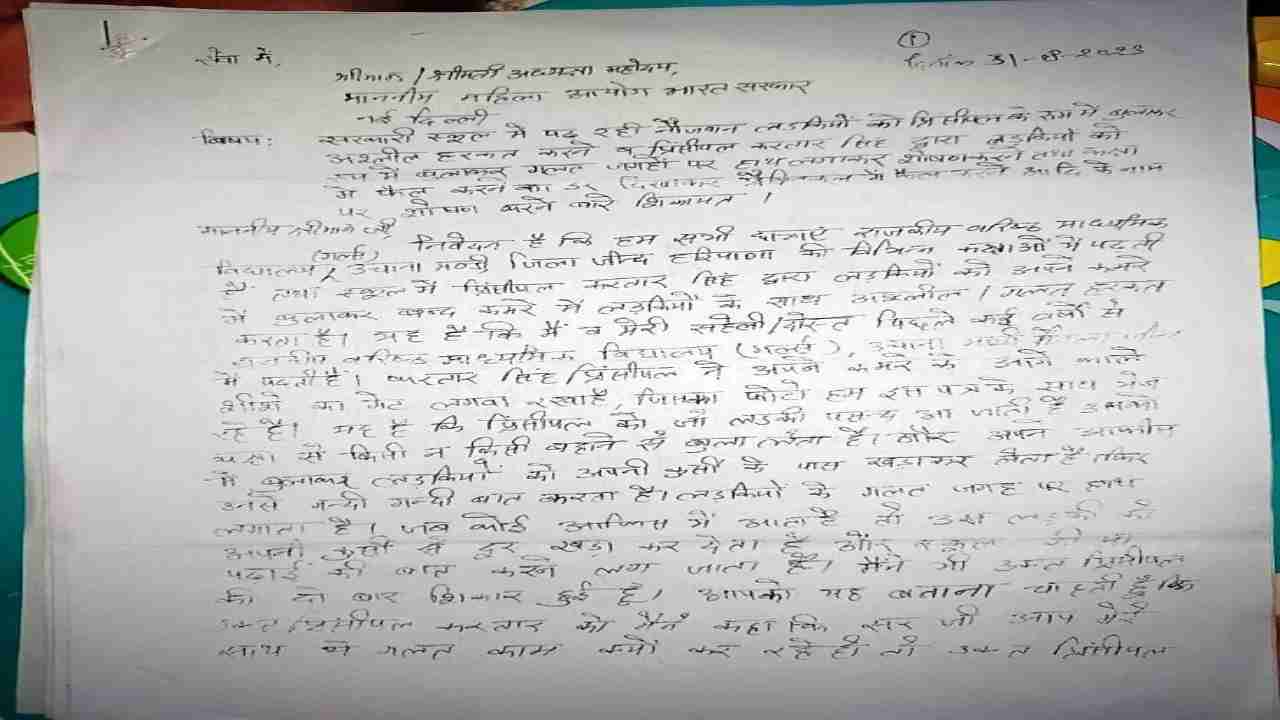 ①
सेवा में,
दिनांक 31-8-2023
श्रीमान / श्रीमती अध्यक्षा महोदय,
माननीय महिला आयोग भारत सरकार
नई दिल्ली
विषय: सरकारी स्कूल में पढ़ रही नौजवान लड़कियों को प्रिंसीपल के रूम में बुलाकर
अश्लील हरकत करने व प्रिंसीपल करतार सिंह द्वारा लड़कियों को
रूम में बुलाकर गलत जगहों पर हाथ लगाकर शोषण करने तथा कक्षा
में फैल करने का डर दिखाकर प्रैक्टिकल में फैल करने आदि के नाम
पर शोषण करने बारे शिकायत ।
माननीय श्रीमान जी,
निवेदन है कि हम सभी छात्राएं राजकीय वरिष्ठ माध्यमिक
विद्यालय (गर्ल्स) उचाना मण्डी जिला जीन्द हरियाणा की विभिन्न कक्षाओं में पढ़ती
हैं तथा स्कूल में प्रिंसीपल करतार सिंह द्वारा लड़कियों को अपने कमरे
में बुलाकर बन्द कमरे में लड़कियों के साथ अश्लील / गलत हरकत
करता है। यह है कि मैं व मेरी सहेली/दोस्त पिछले कई वर्षों से
राजकीय वरिष्ठ माध्यमिक विद्यालय (गर्ल्स), उचाना मण्डी
में पढ़ती हैं। करतार सिंह प्रिंसीपल ने अपने कमरे के आगे काले
शीशे का गेट लगवा रखा है, जिसका फोटो हम इस पत्र के साथ भेज
रहे है। यह है कि प्रिंसीपल को जो लड़की पसन्द आ जाती है उसको
कक्षा से किसी न किसी बहाने से बुला लेता है। और अपने आफीस
में बुलाकर लड़कियों को अपनी कुर्सी के पास खड़ा कर लेता है
उनसे गन्दी गन्दी बात करता है। लड़कियों के गलत जगह पर हाथ
लगाता है। जब कोई आफिस में आता है तो उस लड़की को
अपनी कुर्सी से दूर खड़ा कर देता है और स्कूल की
पढाई की बात करने लग जाता है। मैंने भी उक्त प्रिंसीपल
की दो बार शिकार हुई हूँ। आपको यह बताना चाहती हूँ कि
उक्त प्रिंसीपल करतार को मैंने कहा कि सर जी आप मेरे
साथ ये गलत काम क्यों कर रहे हो तो उक्त प्रिंसीपल